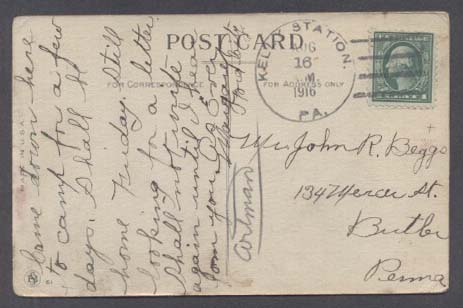 POST CARD
FOR CORRESPONDENCE
FOR ADDRESS ONLY
KELLY STATION,
AUG
16
M.
1916
PA.
Came down here
to camp for a few
days. Shall go
home Friday. Still
looking for a letter.
Shall not write
again until I hear
from you.
Margaret
Artman
Mr. John R. Beggs
134 Mercer St.
Butler
Penna